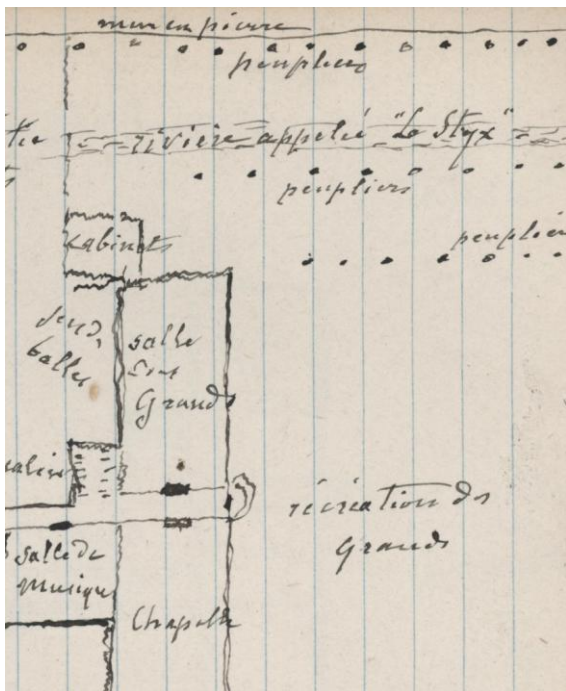 mur en pierre
peupliers
rivière appelée "Le Styx"
peupliers
peuplie
Cabinets
salle
des
Grands
balles
récréation des
Grands
salle de
Musique
Chapelle